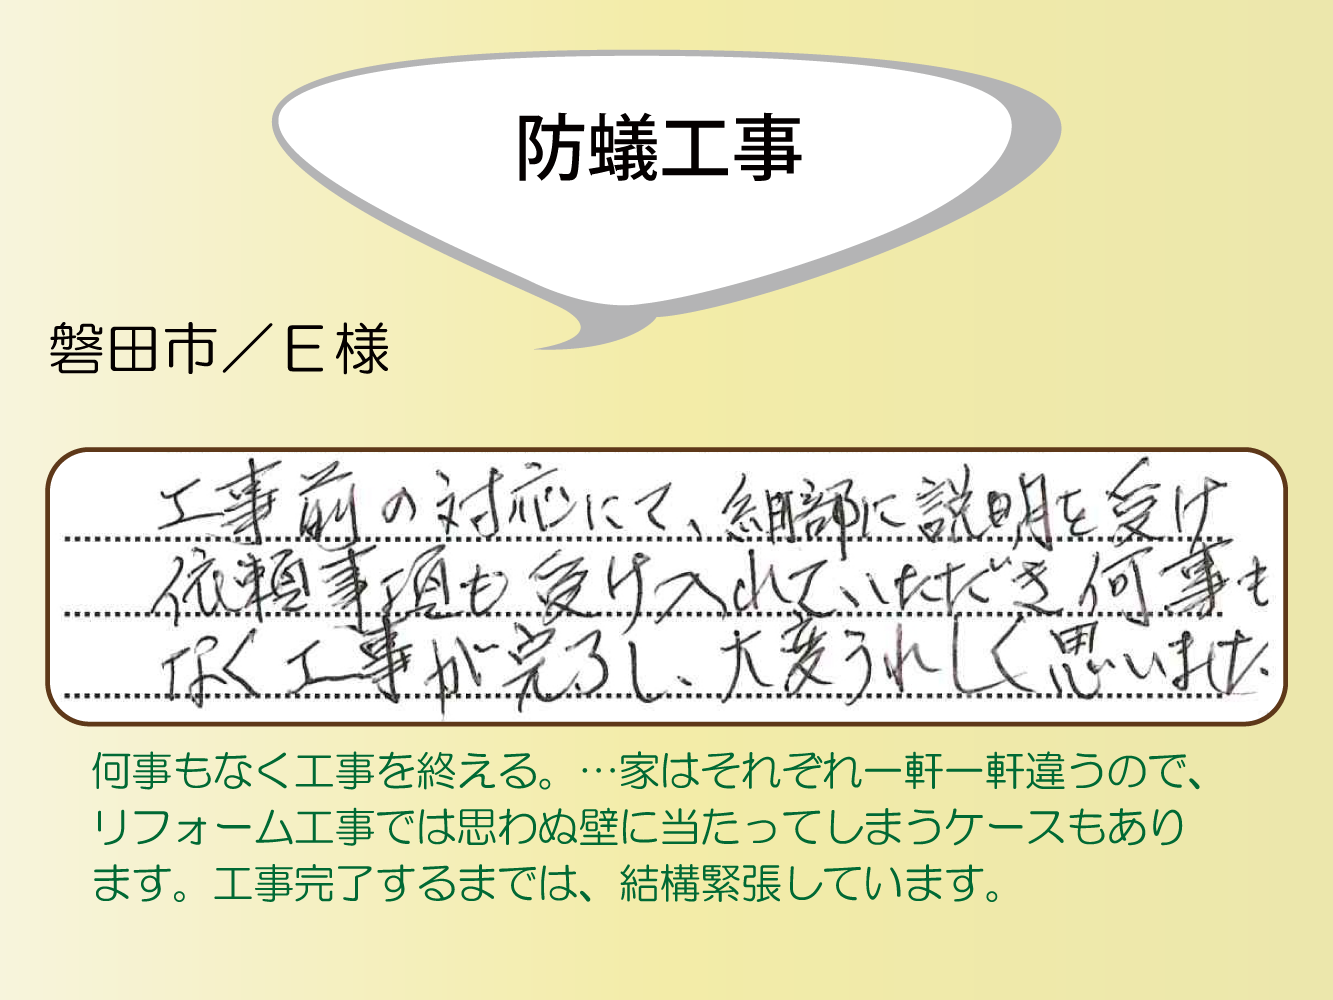 防蟻工事
磐田市／Ｅ様
工事前の対応にて、細部に説明を受け
依頼事項も受け入れていただき何事も
なく工事が完了し、大変うれしく思いました。
何事もなく工事を終える。…家はそれぞれ一軒一軒違うので、
リフォーム工事では思わぬ壁に当たってしまうケースもあり
ます。工事完了するまでは、結構緊張しています。